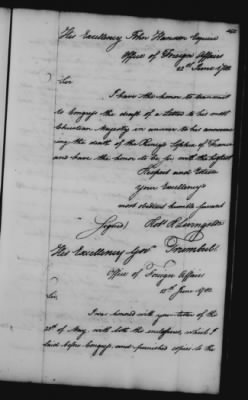 His Excellency John Hanson Esquire
Office of Foreign Affairs
22d June 1782
Sir
I have the honor to transmit
to Congress the draft of a Letter to his most
Christian Majesty in answer to his announ
ing the Death of the King's Sophia of France
and have the honor to be, Sir with the highest
Respect and Esteem
Your Excellency's
most obedient humble servant
(Signed) Robt R Livingston
His Excellency Govr Trumbull
Office of Foreign Affairs
12th June 1782
Sir,
I was honored with your letter of the
23d of May with both the inclosures, which I
laid before Congress and furnished copies to the